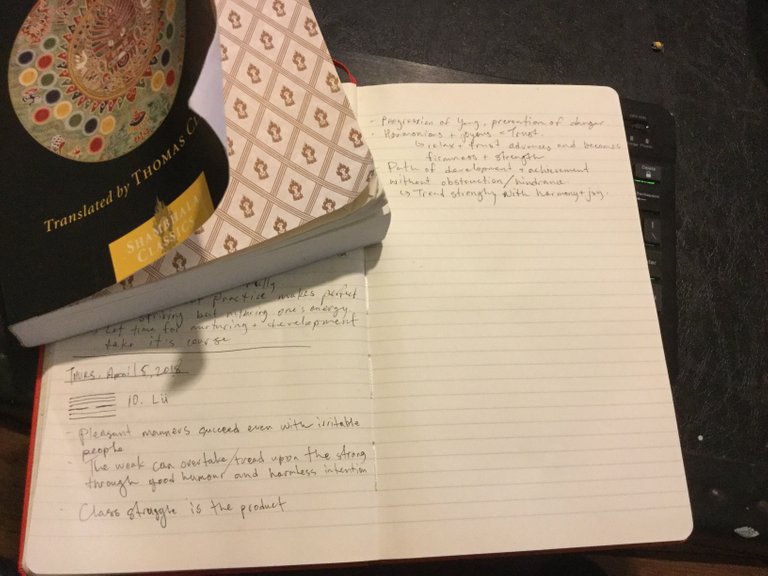 Translated by THOMAS
SHAMBHALA
CLASSICS
Practice makes perfect
striving but nurturing one's energy
Let time for nurturing + development
take it's course
THURS. April 5, 2018
10. Lü
- Pleasant manners succeed even with irritable
people
- The weak can overtake/tread upon the strong
through good humour and harmless intention
- Class struggle is the product
- Progression of Yang, prevention of danger
- Harmonious + joyous = Trust.
↳ relax + trust advances and becomes
firmness + strength
- Path of development + achievement
without obstruction/hindrance.
↳ Tread strongly with harmony + joy.
Delete